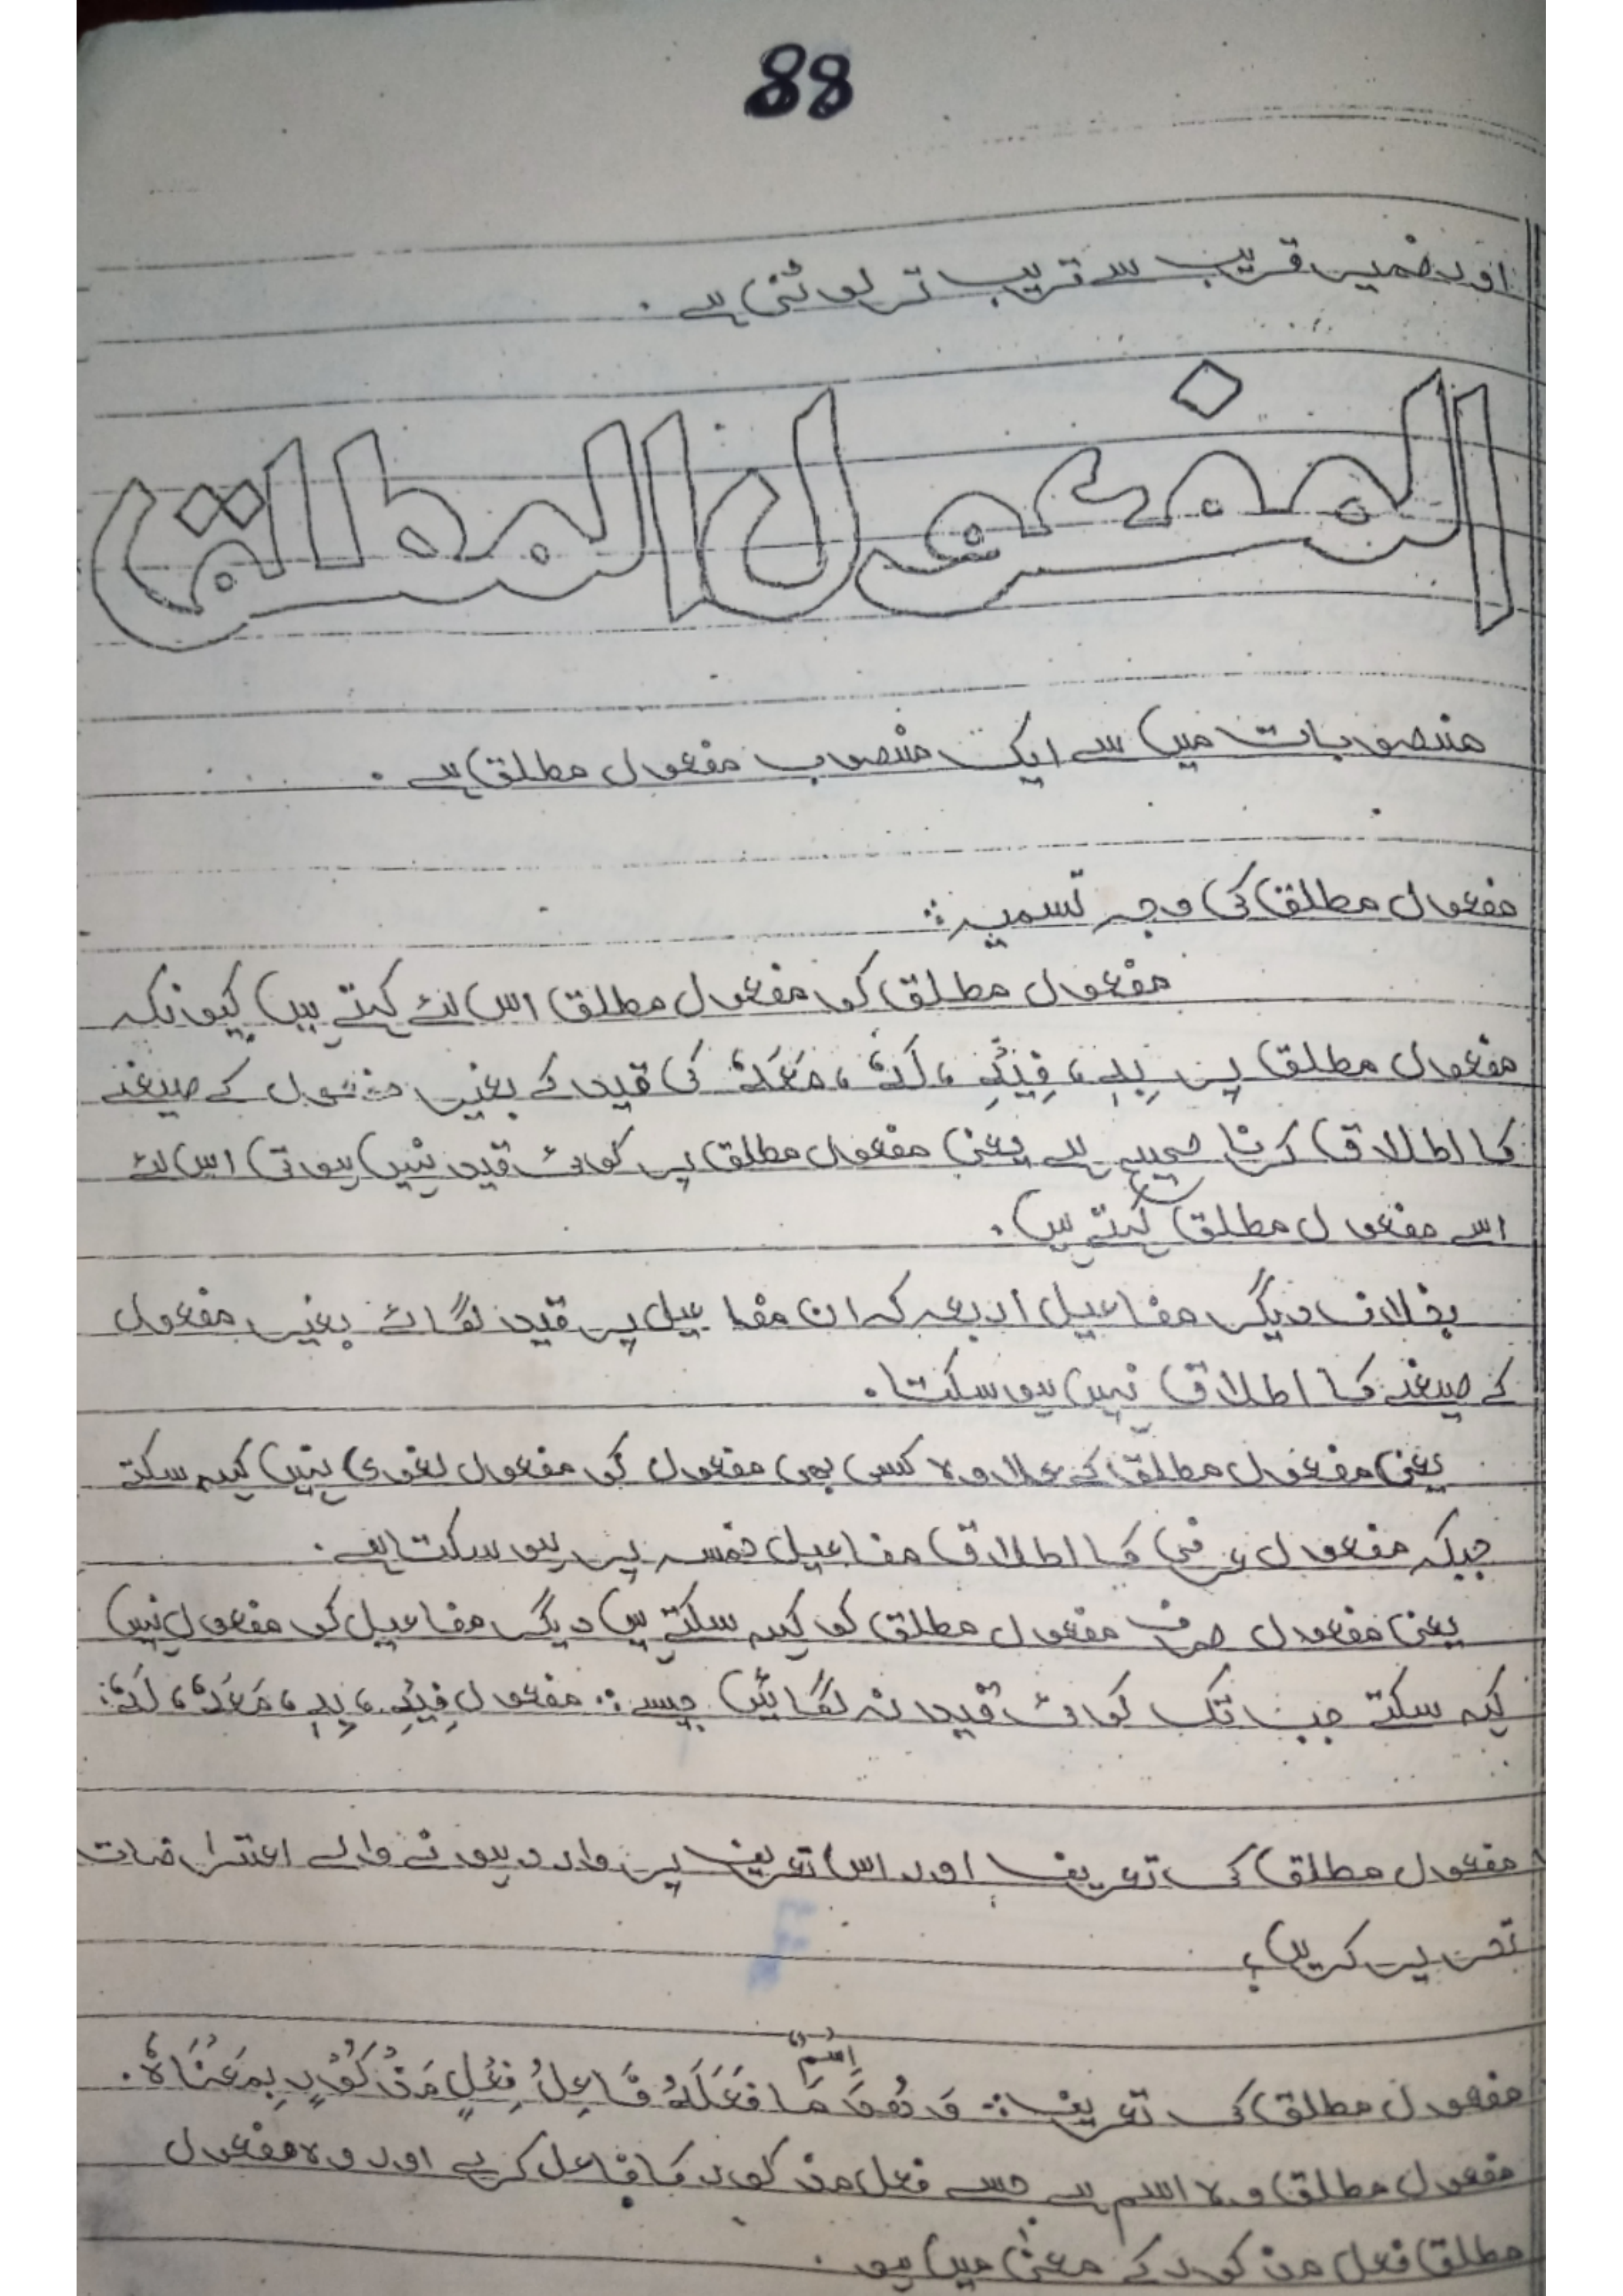 88
اور ضمیر قریب سے قریب تر لوٹتی ہے ۔
المفعول المطلق
منصوبات میں سے ایک منصوب مفعول مطلق ہے ۔
مفعول مطلق کی وجہ تسمیہ :
مفعول مطلق کو مفعول مطلق اس لئے کہتے ہیں کیونکہ
مفعول مطلق پر بِہٖ ، فِیْہِ ، لَہٗ ، مَعَہٗ کی قید کے بغیر مفعول کے صیغے
کا اطلاق کرنا صحیح ہے یعنی مفعول مطلق پر کوئی قید نہیں ہوتی اس لئے
اسے مفعول مطلق کہتے ہیں ۔
بخلاف دیگر مفاعیل اربعہ کہ ان مفاعیل پر قید لگائے بغیر مفعول
کے صیغے کا اطلاق نہیں ہو سکتا ۔
یعنی مفعول مطلق کے علاوہ کسی بھی مفعول کو مفعول لغوی نہیں کہہ سکتے
جبکہ مفعول عرفی کا اطلاق مفاعیل خمسہ پر ہو سکتا ہے ۔
یعنی مفعول صرف مفعول مطلق کو کہہ سکتے ہیں دیگر مفاعیل کو مفعول نہیں
کہہ سکتے جب تک کوئی قید نہ لگائیں جیسے : مفعول فِیْہِ ، بِہٖ ، مَعَہٗ ، لَہٗ :
مفعول مطلق کی تعریف اور اس تعریف پر وارد ہونے والے اعتراضات
تحریر کریں ؟
مفعول مطلق کی تعریف : وَ ھُوَ اِسْمُ مَا فَعَلَہٗ فَاعِلُ فِعْلٍ مَذْکُوْرٍ بِمَعْنَاہُ ۔
مفعول مطلق وہ اسم ہے جسے فعل مذکور کا فاعل کرے اور وہ مفعول
مطلق فعل مذکور کے معنیٰ میں ہو ۔